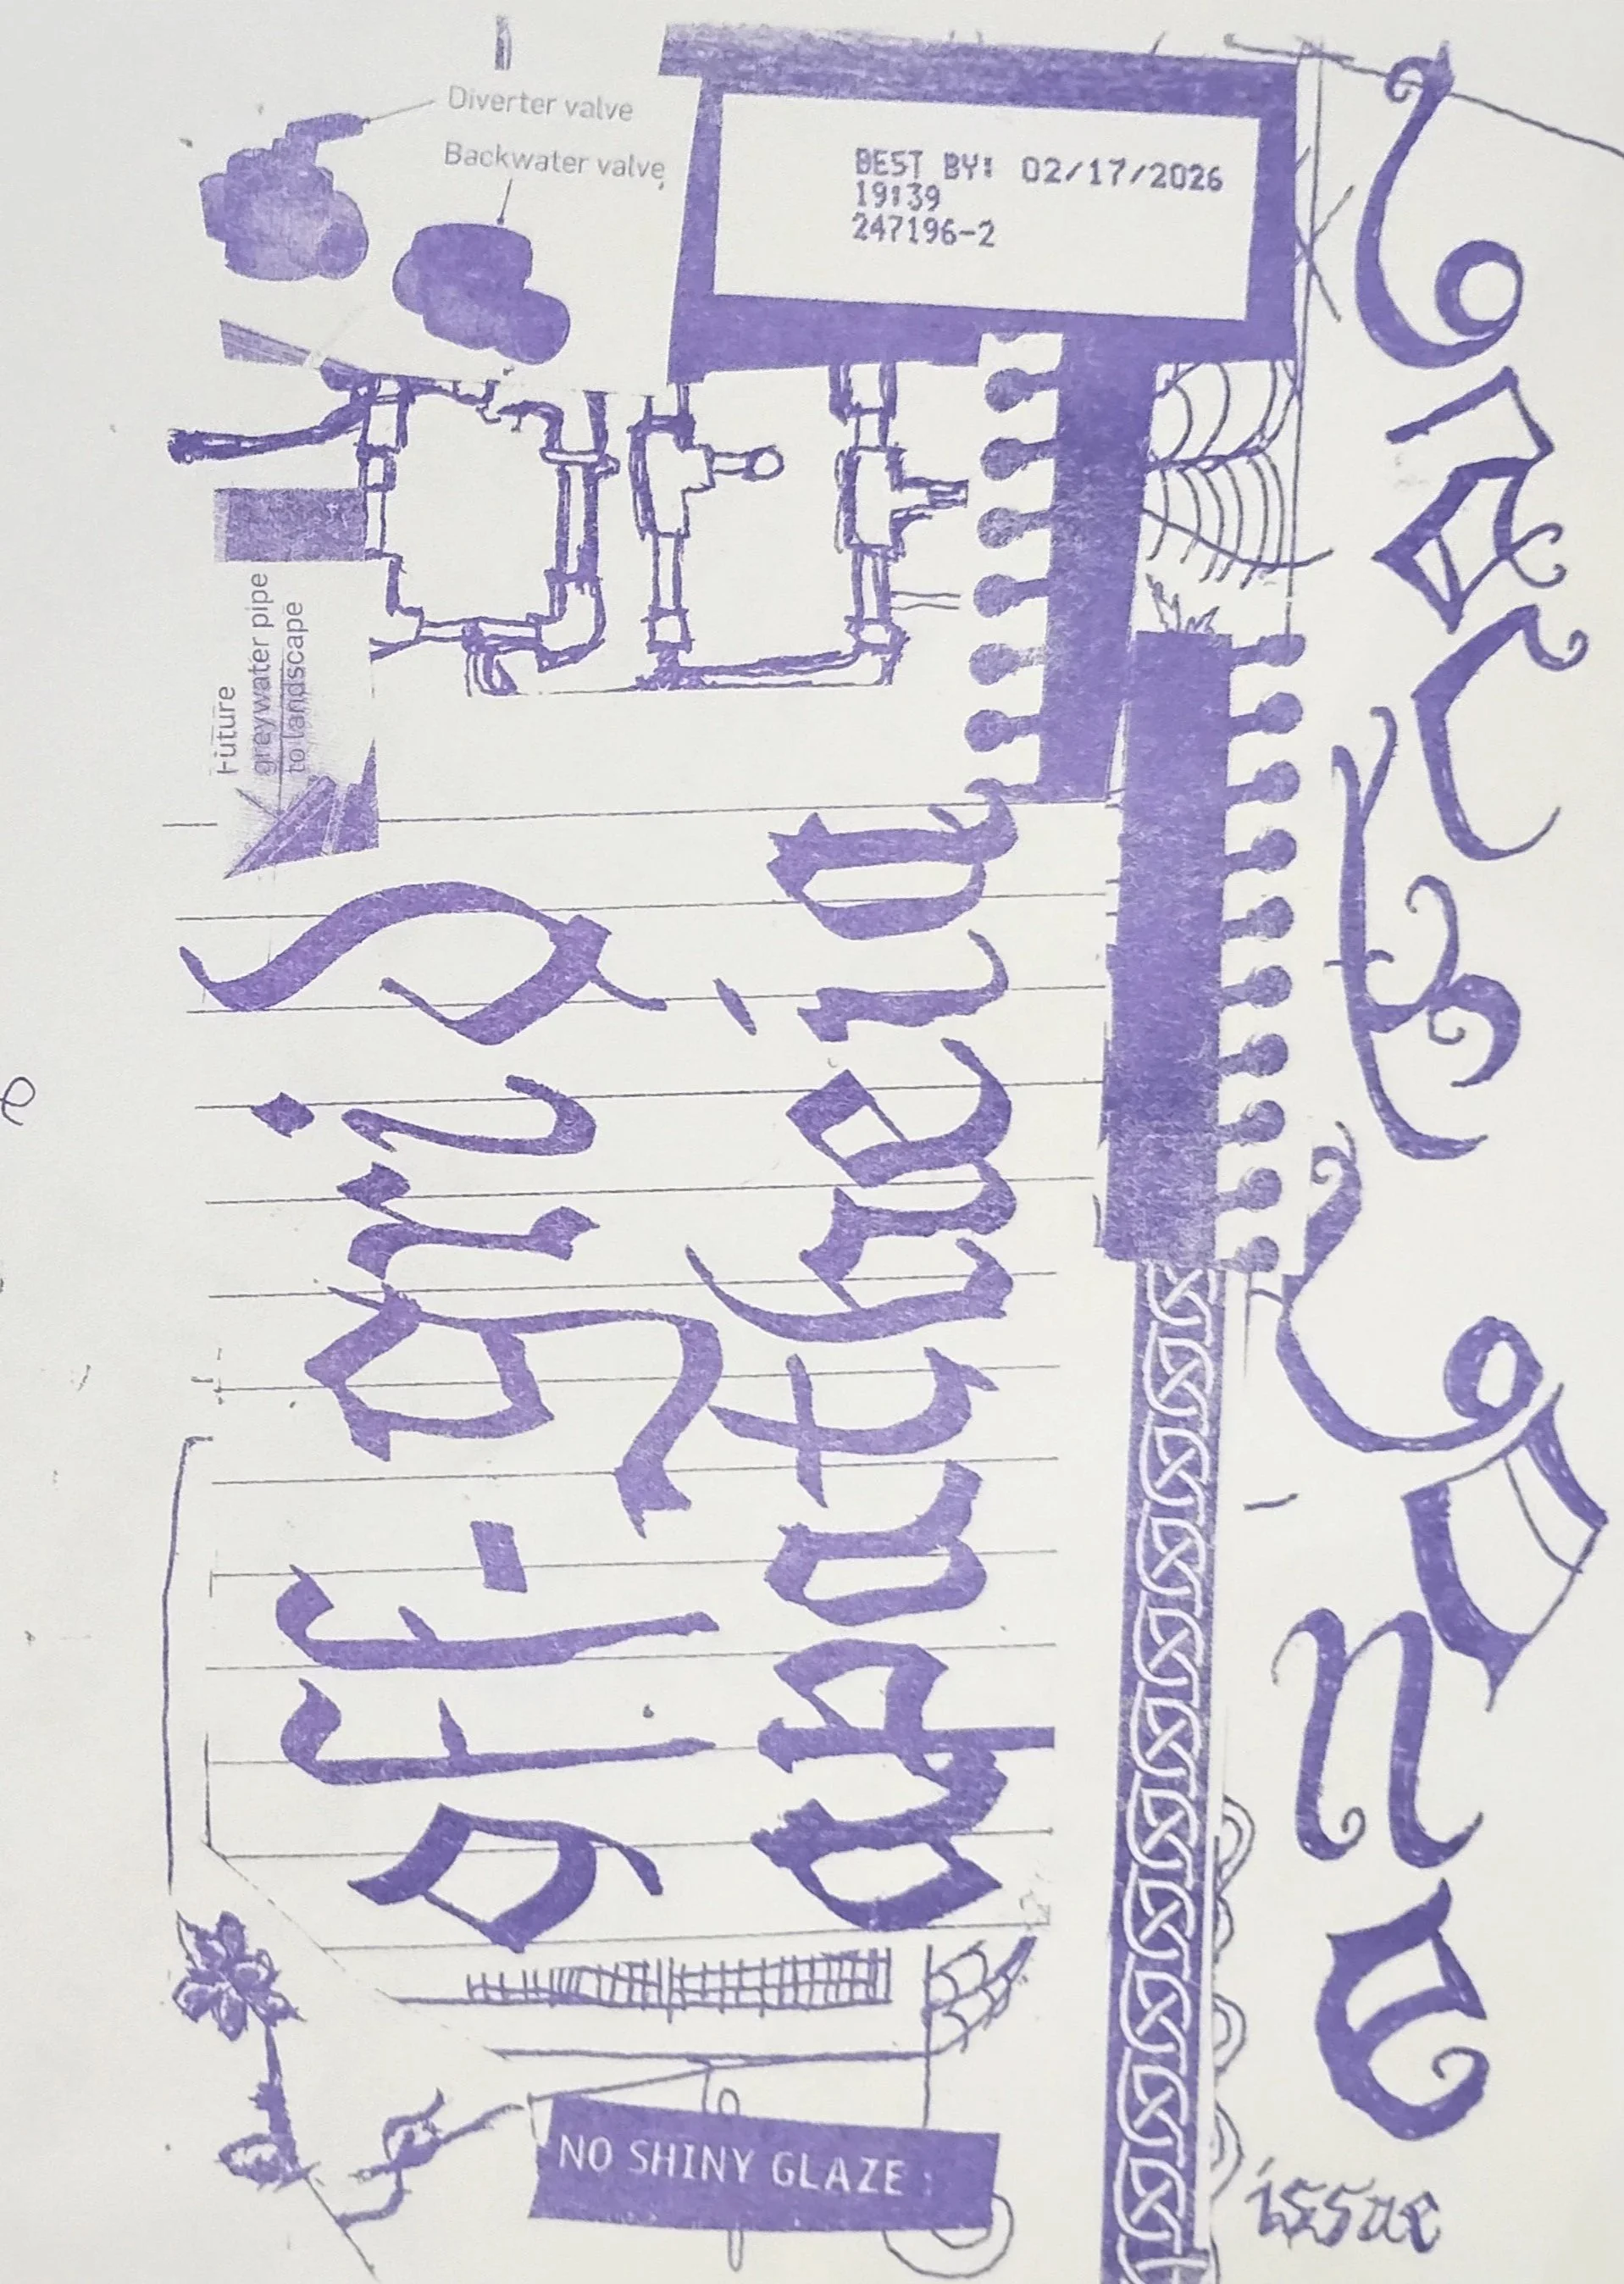 off-grid
apatheia
issue
Diverter valve
Backwater valve
BEST BY: 02/17/2026
19:39
247196-2
Future
greywater pipe
to landscape
NO SHINY GLAZE